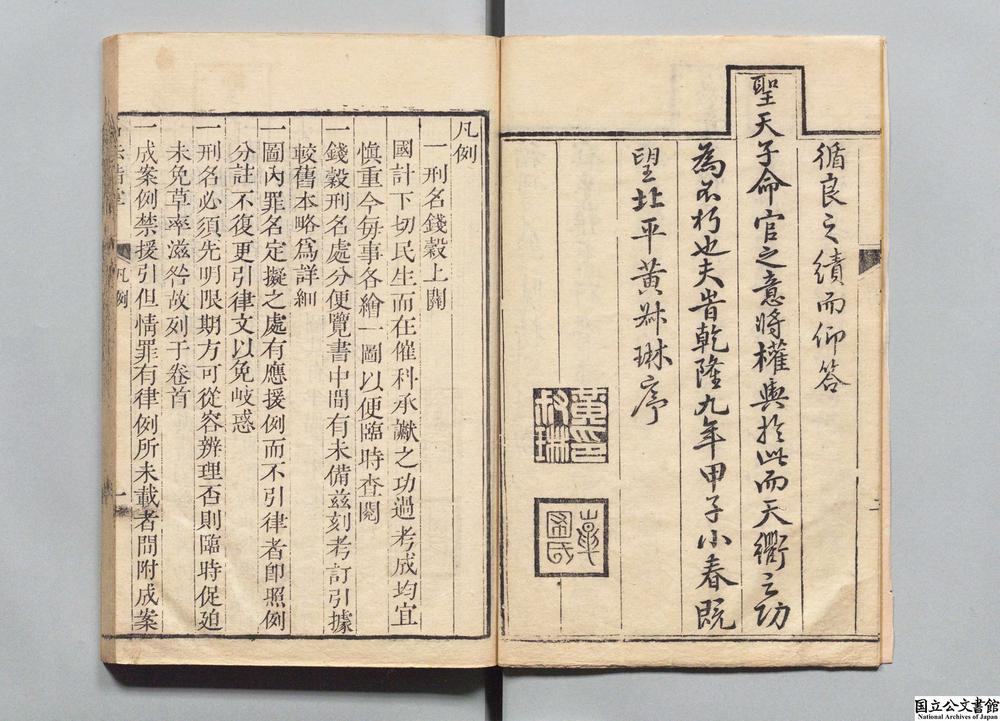 循良之績而仰答
聖天子命官之意將權輿於此而天衢之功
為不朽也夫旹乾隆九年甲子小春既
望北平黃叔琳序
凡例
一刑名錢穀上關
國計下切民生而在催科承讞之功過考成均宜
愼重今每事各繪一圖以便臨時查閱
一錢穀刑名處分便覽書中間有未備兹刻考訂引據
較舊本略爲詳細
一圖內罪名定擬之處有應援例而不引律者卽照例
分註不復更引律文以免岐惑
一刑名必須先明限期方可從容辨理否則臨時促廹
未免草率滋咎故列于卷首
一成案例禁援引但情罪有律例所未載者間附成案
凡例
一
二
国立公文書館
National Archives of Japan